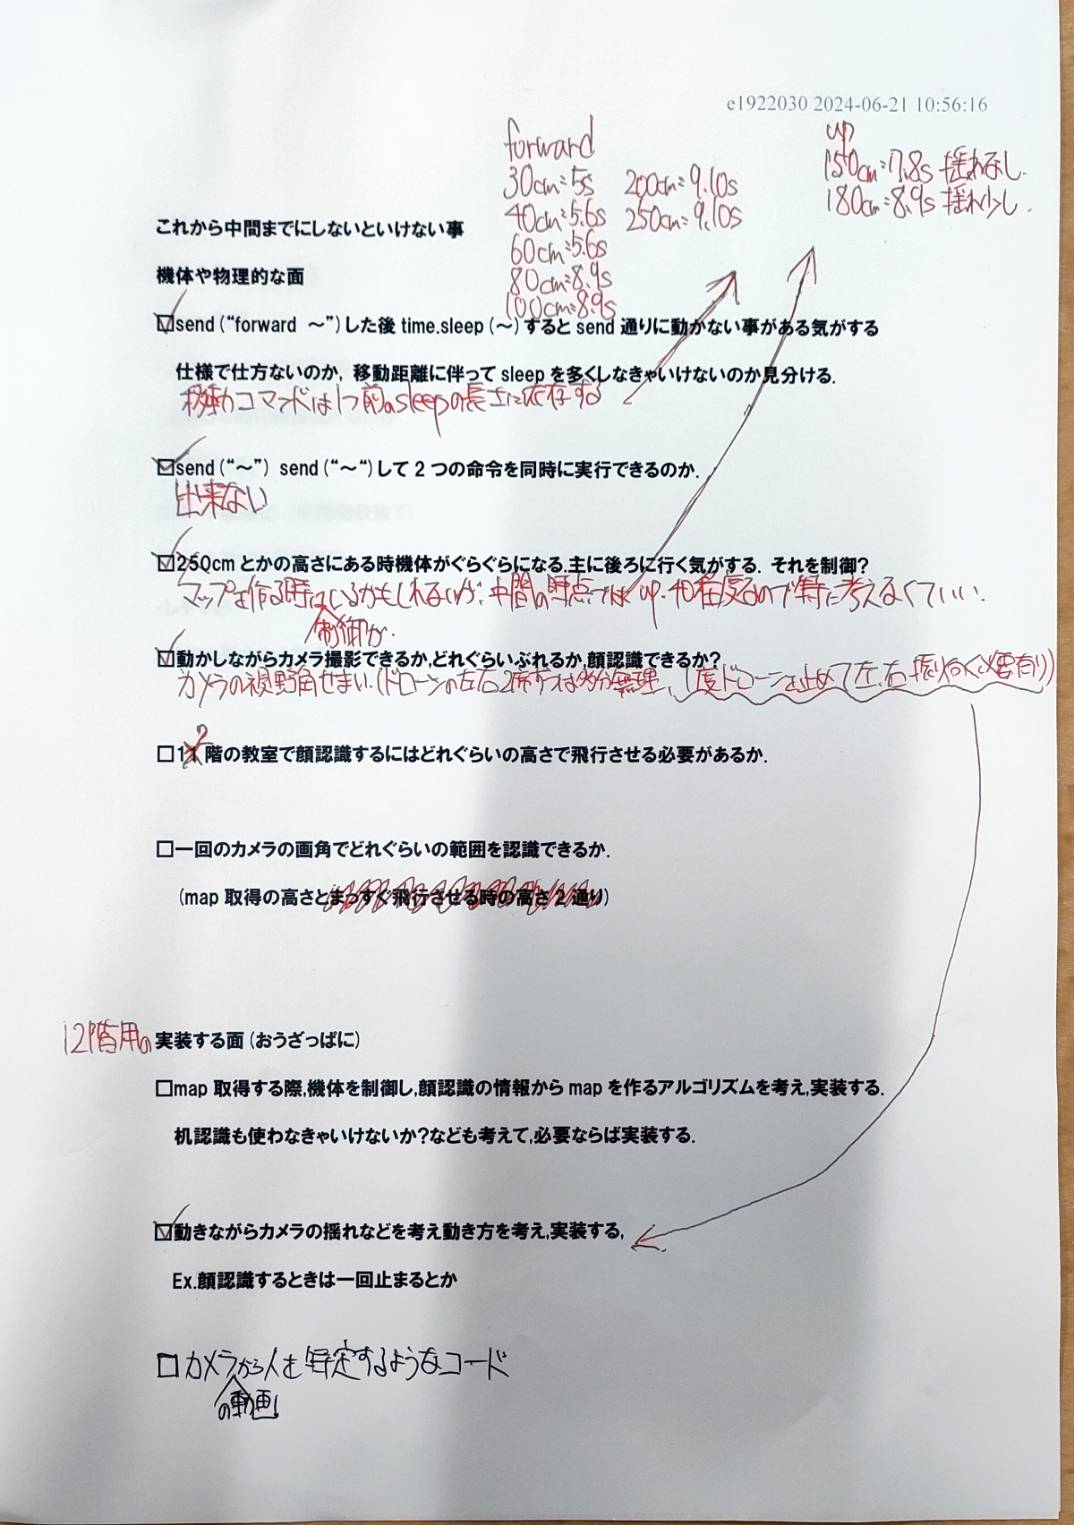 e1922030 2024-06-21 10:56:16
forward
30cm=5s
40cm=5.6s
60cm=5.6s
80cm=8.9s
100cm=8.9s
200cm=9.10s
250cm=9.10s
up
150cm=7.8s 揺れなし.
180cm=8.9s 揺れ少し.
これから中間までにしないといけない事
機体や物理的な面
☑send(“forward ～”)した後 time.sleep(～)すると send 通りに動かない事がある気がする
仕様で仕方ないのか, 移動距離に伴って sleep を多くしなきゃいけないのか見分ける.
移動コマンドは1つ前のsleepの長さに依存する
☑send(“～”) send(“～“)して２つの命令を同時に実行できるのか.
出来ない
☑250cm とかの高さにある時機体がぐらぐらになる.主に後ろに行く気がする. それを制御?
マップを作る時はいるかもしれないが、中間の時点では up. 程度なので特に考えなくていい.
制御が.
☑動かしながらカメラ撮影できるか,どれぐらいぶれるか,顔認識できるか?
カメラの視野角せまい.(ドローンの左右2席ずつは多分無理、1度ドローンを止めて左、右振り向く必要有り)
□12階の教室で顔認識するにはどれぐらいの高さで飛行させる必要があるか.
□一回のカメラの画角でどれぐらいの範囲を認識できるか.
(map 取得の高さとまっすぐ飛行させる時の高さ２通り)
12階用の 実装する面(おうざっぱに)
□map 取得する際,機体を制御し,顔認識の情報から map を作るアルゴリズムを考え,実装する.
机認識も使わなきゃいけないか?なども考えて,必要ならば実装する.
☑動きながらカメラの揺れなどを考え動き方を考え,実装する,
Ex.顔認識するときは一回止まるとか
□カメラから人を特定するようなコード
の動画